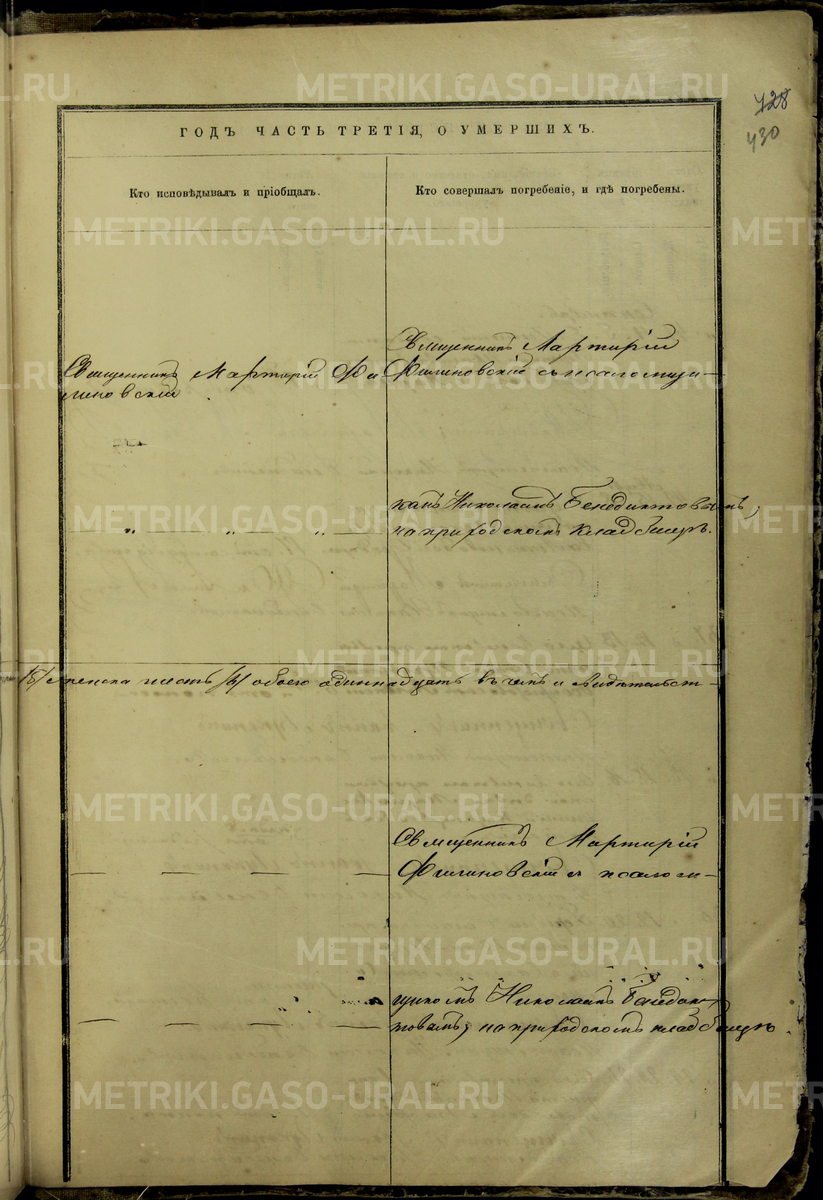 428
430
ГОДЪ ЧАСТЬ ТРЕТІЯ, О УМЕРШИХЪ.
Кто исповѣдывалъ и пріобщалъ.
Кто совершалъ погребеніе, и гдѣ погребены.
Священникъ Мартирій
Священникъ Мартирій Фи
Филиновскій съ псаломщи-
линовскій
комъ Николаемъ Бенедиктовымъ,
на приходскомъ кладбищѣ.
/5/ женска шесть /6/ обоего одиннадцать въ чемъ и свидѣтельст-
Священникъ Мартирій
Филиновскій съ псалом-
щикомъ Николаемъ Бенедик
товымъ, на приходскомъ кладбищѣ.
METRIKI.GASO-URAL.RU